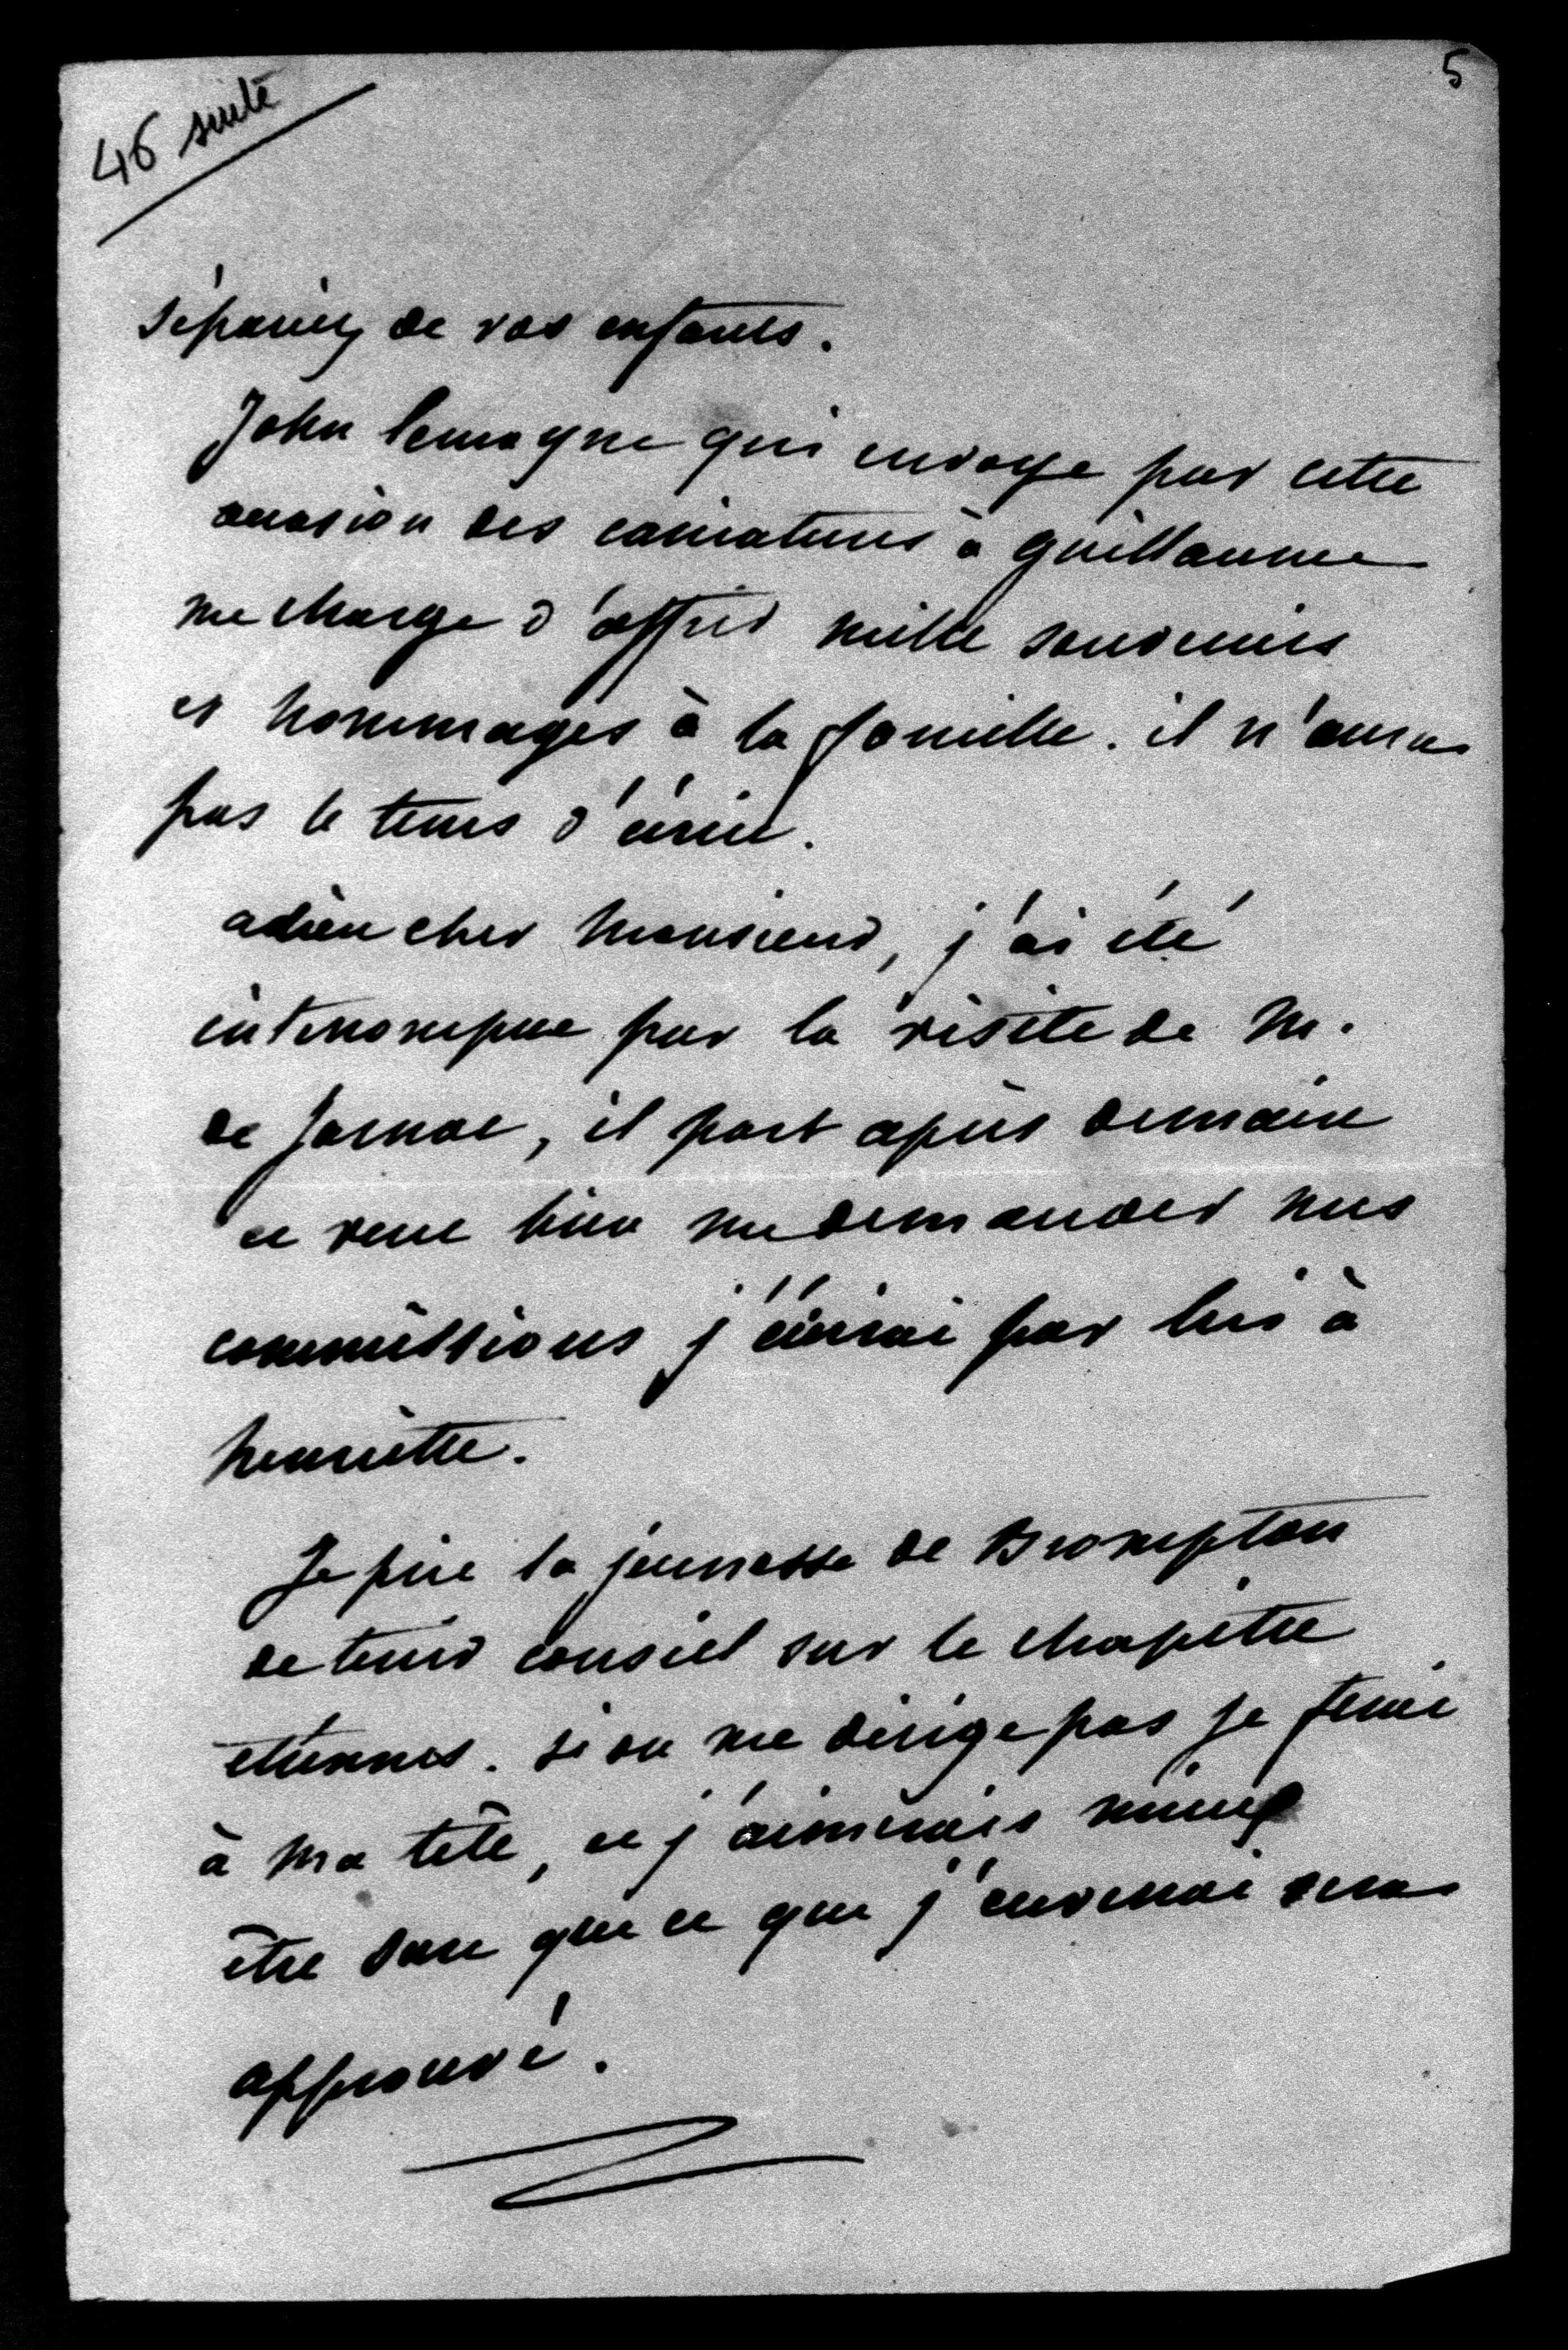 5
46 suite
sépariez de vos enfants.
John lemoyne qui envoye par cette
occasion des caricatures à guillaume
me charge d'offrir mille souvenirs
et hommages à la famille. il n'aura
pas le tems d'écrire.
adieu cher Monsieur, j'ai été
interrompue par la visite de M.
de Jarnac, il part après demain
et veut bien me demander mes
commissions j'écrirai par lui à
henriette.
Je prie la jeunesse de Brompton
de tenir conseil sur le chapitre
etrennes. si on me dirige pas je ferai
à ma tête, et j'aimerais mieux
être sure que ce que j'enverrai sera
approuvé.